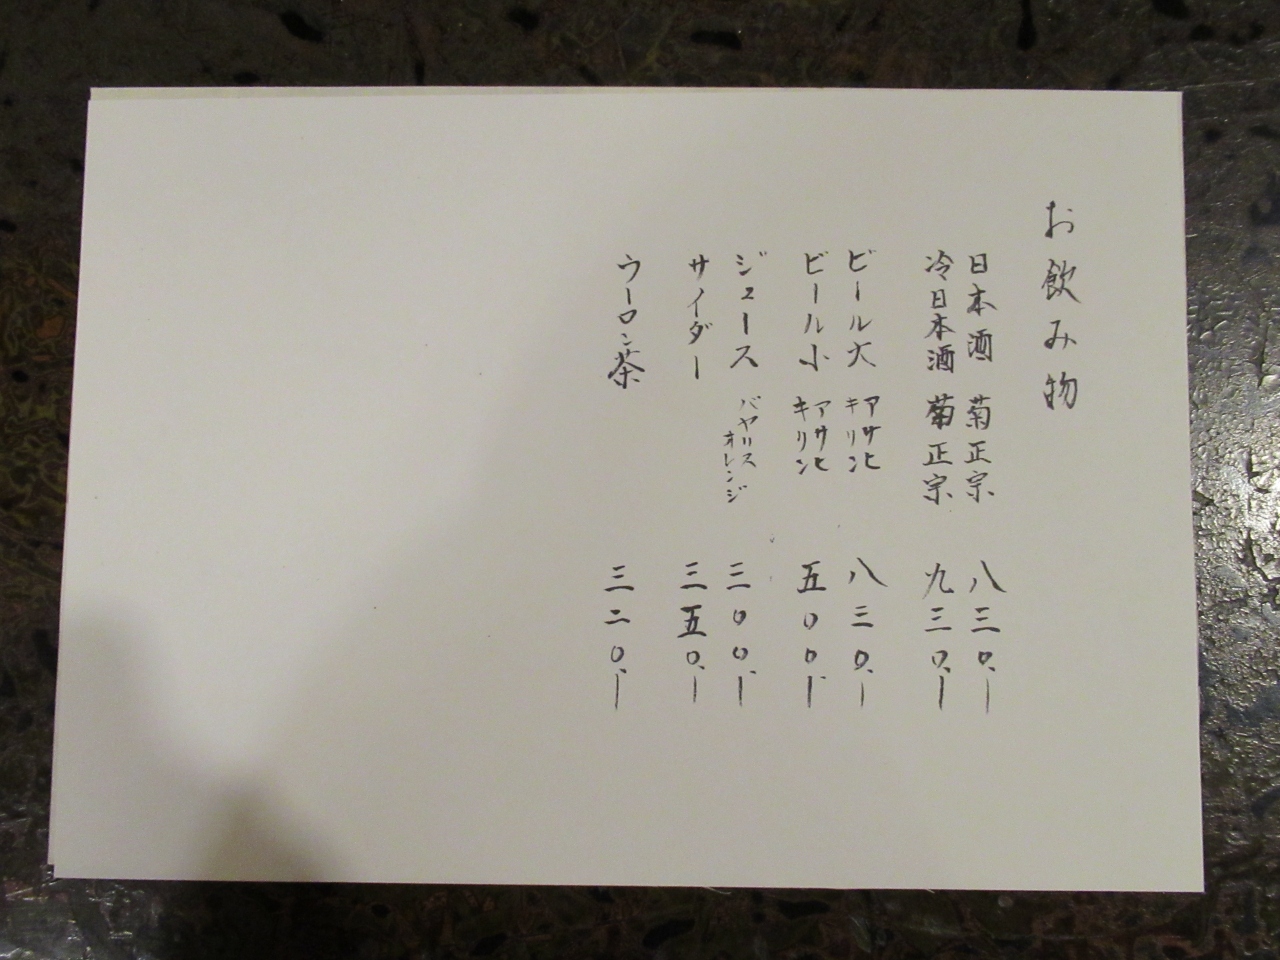 お飲み物
日本酒 菊正宗 八三〇、ー
冷日本酒 菊正宗 九三〇、ー
ビール大 アサヒ キリン 八三〇、ー
ビール小 アサヒ キリン 五〇〇、ー
ジュース バヤリス オレンジ 三〇〇、ー
サイダー 三五〇、ー
ウーロン茶 三二〇、ー